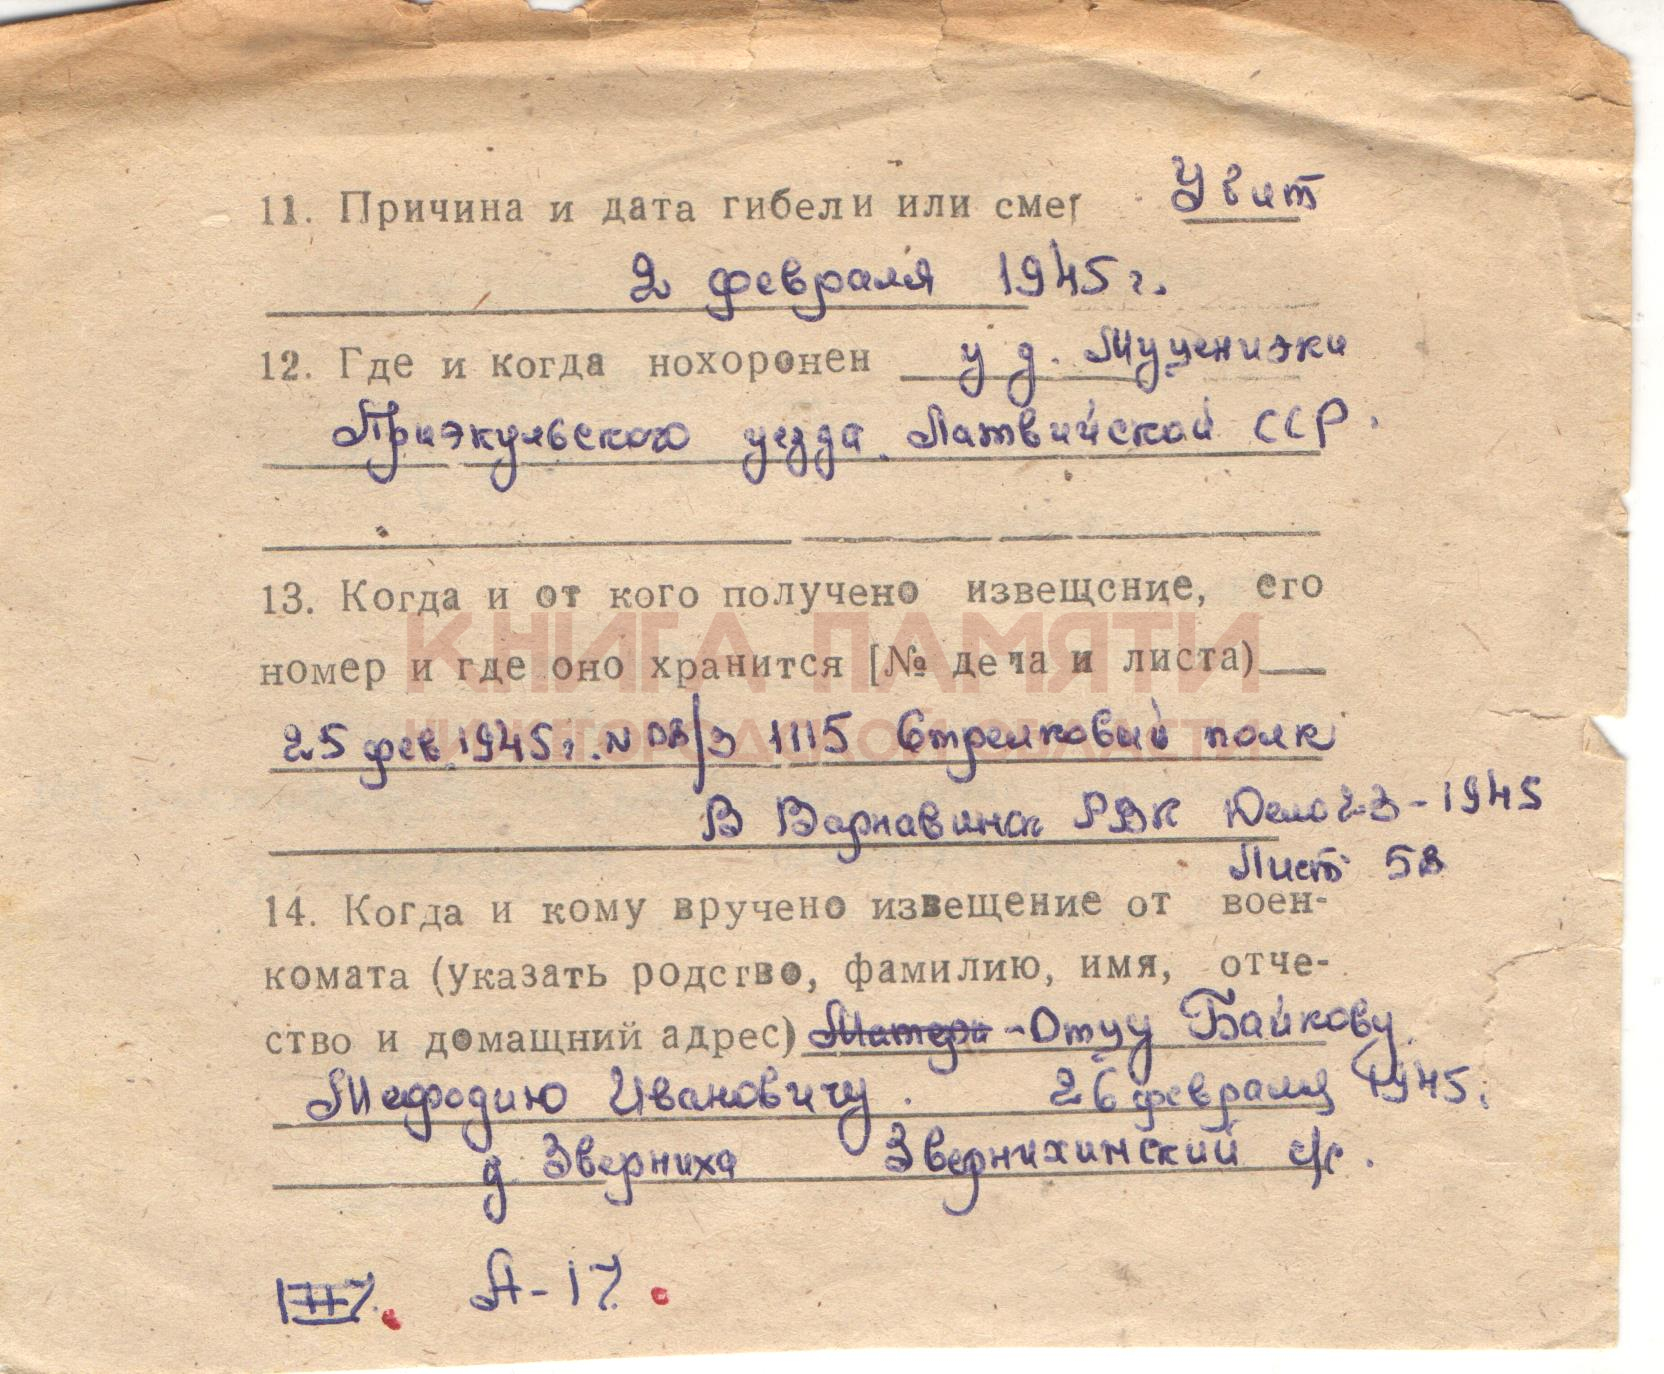 11. Причина и дата гибели или смер Увит
2 февраля 1945 г.
12. Где и когда нохоронен у д. Муцениэки
Приэкульского уезда Латвийской ССР.
13. Когда и от кого получено извещсние, его
КНИГА ПАМЯТИ
номер и где оно хранится [№ дела и листа)
НИЖЕГОРОДСКОЙ ОБЛАСТИ
25 фев. 1945 г. N 1115 Стрелковый полк
В Варнавинск РВК Дело 2-3-1945
Лист
14. Когда и кому вручено извещение от воен-
комата (указать родство, фамилию, имя, отче-
ство и домащний адрес) Матери - Отцу Байкову
Мефодию Ивановичу. 26 февраля 1945.
д. Зверниха Звернихинский с/с.
А-17.